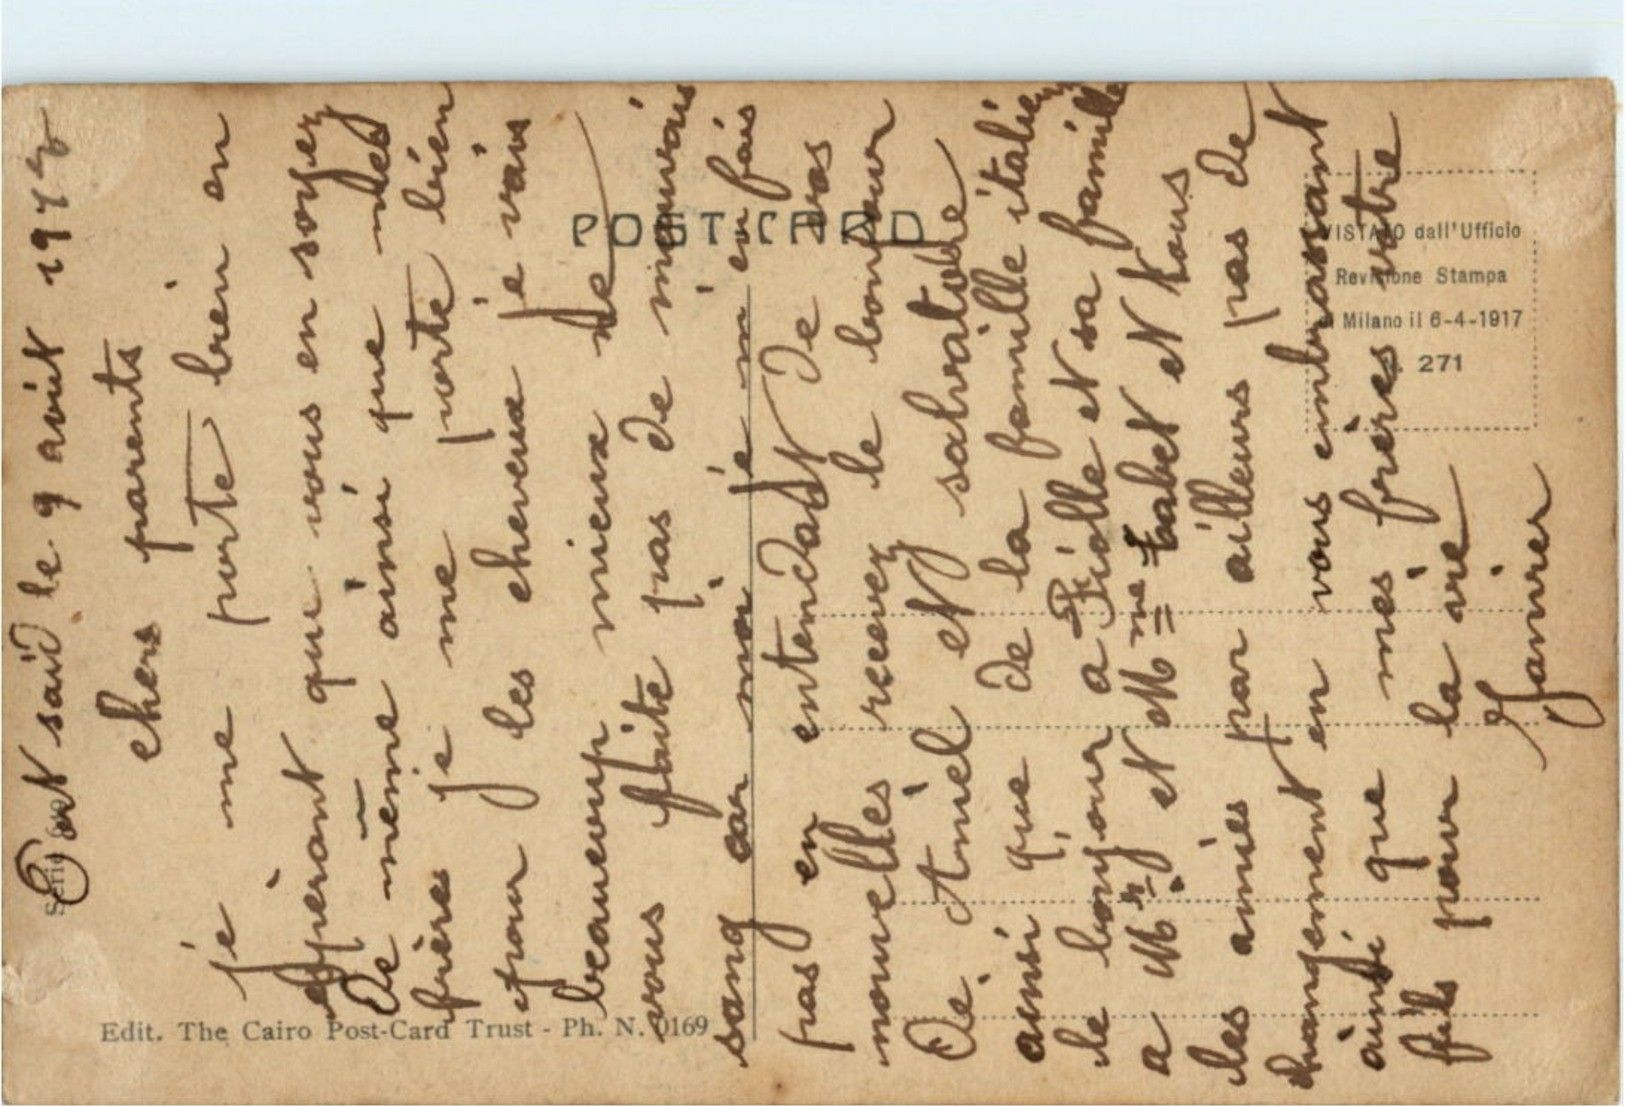 Port saïd le 9 août 1918
chers parents
je me porte bien en
espérant que vous en soyez
de même ainsi que mes
frères je me porte bien
pour les cheveux je vais
beaucoup mieux ne
vous faite pas de mauvais
sang car moi je m'en fais
pas en entendant de vos
nouvelles recevez le bonjour
de Amiel et salvatore
ainsi que de la famille italien
le bonjour a Piolle et sa famille
a Mr et Mme Tabet et tous
les amies par ailleurs pas de
changement en vous embrassant
ainsi que mes frères votre
fils pour la vie
Janvier
POST CARD
VISTATO dall'Ufficio
Revisione Stampa
di Milano il 6-4-1917
271
Edit. The Cairo Post-Card Trust - Ph. N. 0169
Serie